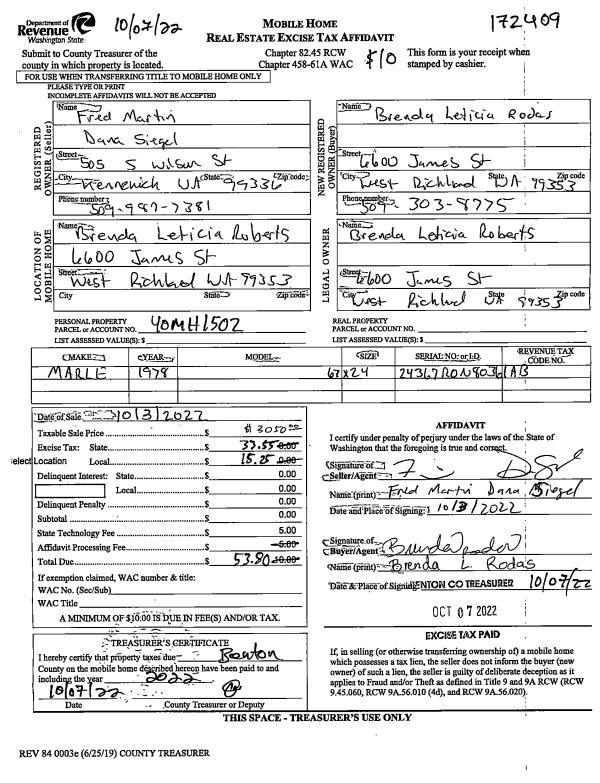 Department of
Revenue
Washington State
10/07/22
MOBILE HOME
REAL ESTATE EXCISE TAX AFFIDAVIT
172409
Submit to County Treasurer of the
county in which property is located.
Chapter 82.45 RCW
Chapter 458-61A WAC
$10
This form is your receipt when
stamped by cashier.
FOR USE WHEN TRANSFERRING TITLE TO MOBILE HOME ONLY
PLEASE TYPE OR PRINT
INCOMPLETE AFFIDAVITS WILL NOT BE ACCEPTED
REGISTERED OWNER (Seller)
Name Fred Martin
Dana Siegel
Street 505 S Wilson St
City Kennewick WA State 99336 Zip code
Phone number 509-987-7381
NEW REGISTERED OWNER (Buyer)
Name Brenda Leticia Rodas
Street 6600 James St
City West Richland State WA 99353 Zip code
Phone number 509-303-8775
LOCATION OF MOBILE HOME
Name Brenda Leticia Roberts
6600 James St
Street West Richland WA 99353
City State Zip code
LEGAL OWNER
Name Brenda Leticia Roberts
Street 6600 James St
City West Richland WA 99353 Zip code
PERSONAL PROPERTY
PARCEL or ACCOUNT NO. YOMH1502
LIST ASSESSED VALUE(S): $
REAL PROPERTY
PARCEL or ACCOUNT NO.
LIST ASSESSED VALUE(S): $
MAKE YEAR MODEL SIZE SERIAL NO. or I.D. REVENUE TAX CODE NO.
MARLE 1978 67x24 24367RON8036 AB
Date of Sale 10/3/2022
Taxable Sale Price $ 3050.00
Excise Tax: State $ 33.55 0.00
elect Location Local $ 15.25 0.00
Delinquent Interest: State $ 0.00
Local $ 0.00
Delinquent Penalty $ 0.00
Subtotal $ 0.00
State Technology Fee $ 5.00
Affidavit Processing Fee $ 5.00
Total Due $ 53.80 10.00
If exemption claimed, WAC number & title:
WAC No. (Sec/Sub)
WAC Title
A MINIMUM OF $10.00 IS DUE IN FEE(S) AND/OR TAX.
TREASURER'S CERTIFICATE
I hereby certify that property taxes due Benton
County on the mobile home described hereon have been paid to and
including the year 2022
10/07/22
Date County Treasurer or Deputy
AFFIDAVIT
I certify under penalty of perjury under the laws of the State of
Washington that the foregoing is true and correct.
Signature of
Seller/Agent
Name (print) Fred Martin Dana Siegel
Date and Place of Signing: 10/3/2022
Signature of
Buyer/Agent
Name (print) Brenda L Rodas
Date & Place of Signing BENTON CO TREASURER 10/07/22
OCT 07 2022
EXCISE TAX PAID
If, in selling (or otherwise transferring ownership of) a mobile home
which possesses a tax lien, the seller does not inform the buyer (new
owner) of such a lien, the seller is guilty of deliberate deception as it
applies to Fraud and/or Theft as defined in Title 9 and 9A RCW (RCW
9.45.060, RCW 9A.56.010 (4d), and RCW 9A.56.020).
THIS SPACE - TREASURER'S USE ONLY
REV 84 0003e (6/25/19) COUNTY TREASURER